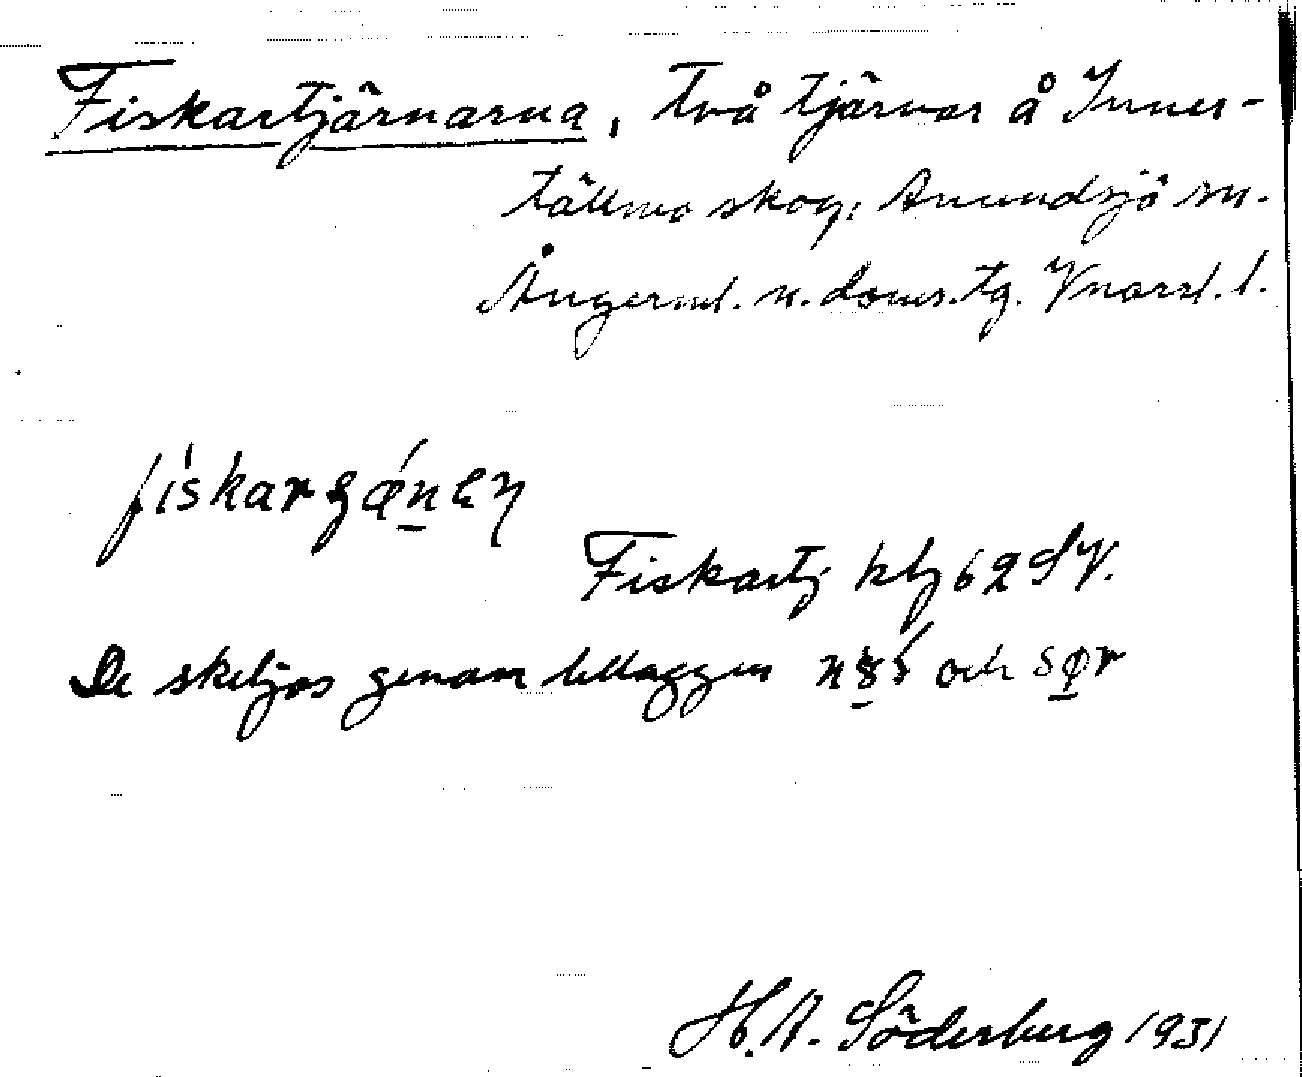 Fiskartjärnarna, två tjärnar å Inner-
tällmo skog, Anundsjö sn.
Ångerml. n. doms. tg. Vnorrl. l.
Fiskartj kbl 62 SV.
De skeljas genom tilläggen och
H. A. Söderberg 1931